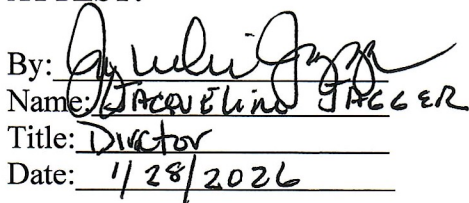 By:
Name: JACQUELINE JAGGER
Title: Director
Date: 1/28/2026